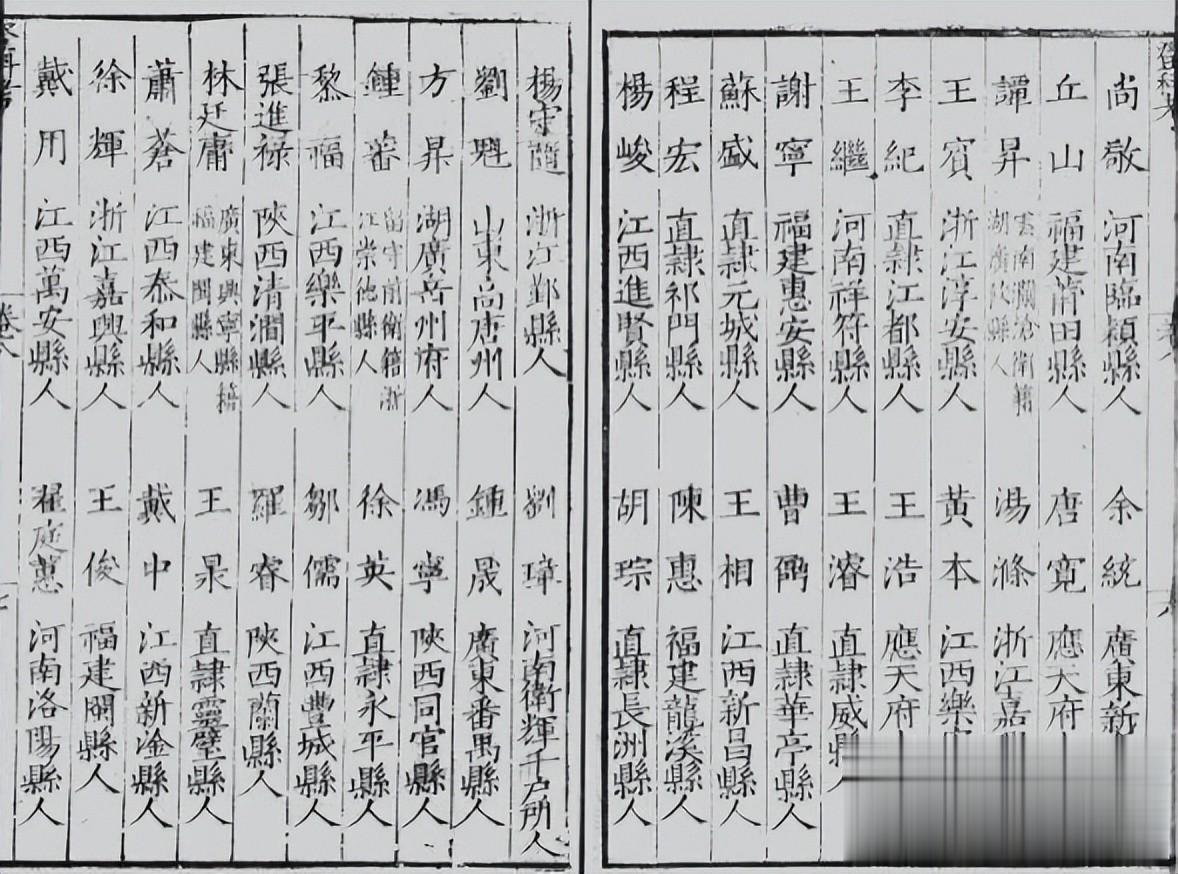 尚敬 河南臨潁縣人 余統 廣東新
丘山 福建莆田縣人 唐寬 應天府
譚昇 雲南瀾滄衛籍湖廣攸縣人 湯滌 浙江嘉
王賓 浙江淳安縣人 黃本 江西樂
李紀 直隸江都縣人 王浩 應天府
王繼 河南祥符縣人 王濬 直隸威縣人
謝寧 福建惠安縣人 曹 直隸華亭縣人
蘇盛 直隸元城縣人 王相 江西新昌縣人
程宏 直隸祁門縣人 陳惠 福建龍溪縣人
楊峻 江西進賢縣人 胡琮 直隸長洲縣人
楊守隨 浙江鄞縣人 劉璋 河南衛輝千戶所人
劉魁 山東高唐州人 鍾晟 廣東番禺縣人
方昇 湖廣岳州府人 馮寧 陝西同官縣人
鍾蕃 留守前衛籍浙江崇德縣人 徐英 直隸永平縣人
黎福 江西樂平縣人 鄒儒 江西豐城縣人
張進祿 陝西清澗縣人 羅睿 陝西蘭縣人
林廷庸 廣東興寧縣籍福建閩縣人 王杲 直隸靈璧縣人
蕭蒼 江西泰和縣人 戴中 江西新淦縣人
徐輝 浙江嘉興縣人 王俊 福建閩縣人
戴用 江西萬安縣人 翟庭蕙 河南洛陽縣人